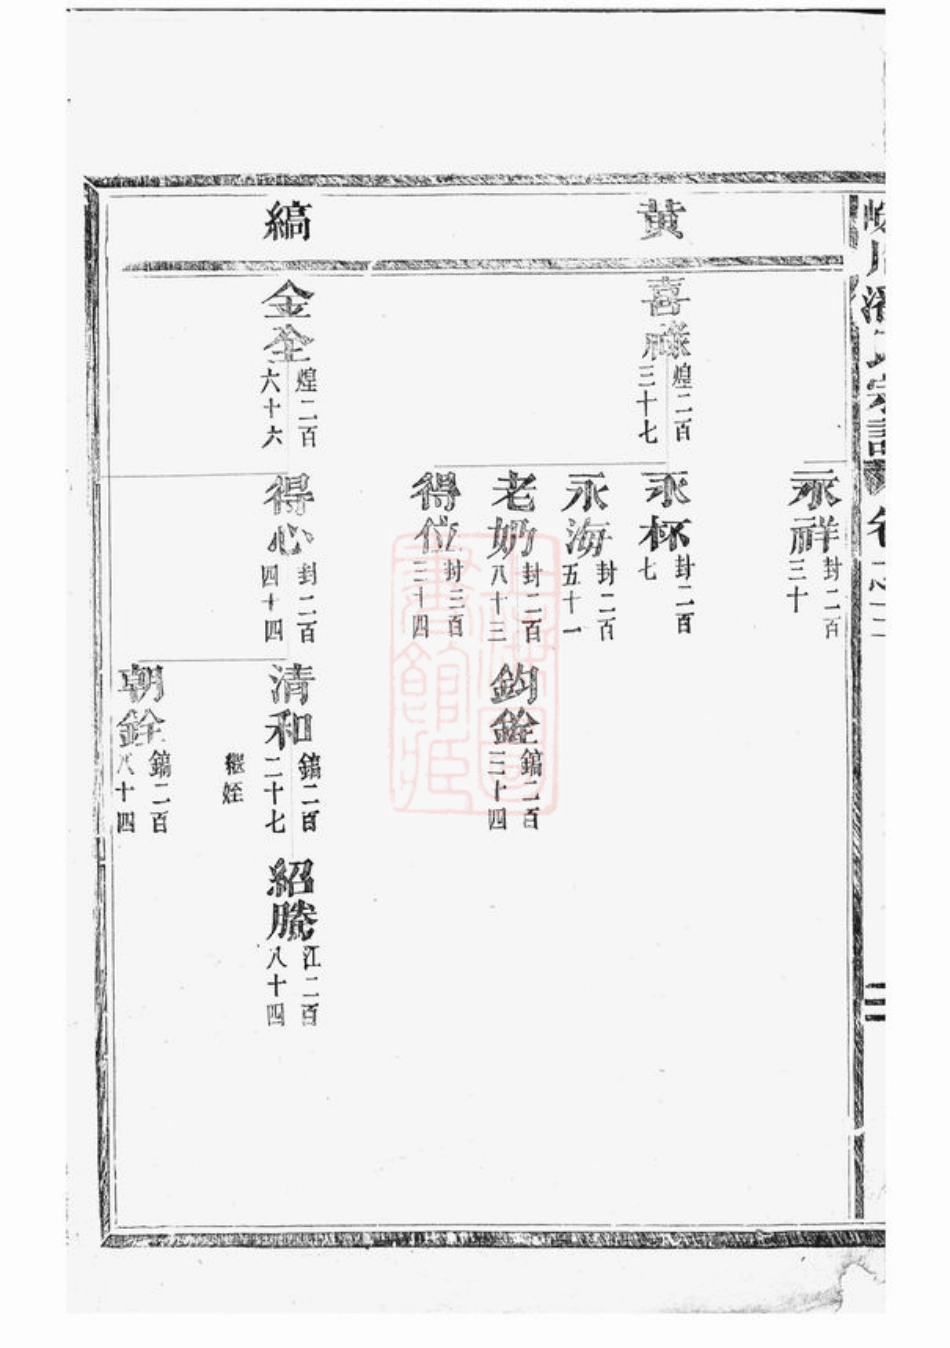 潘氏宗譜 卷之二
二
黄
縞
永祥 封二百三十
喜祿 煌二百三十七
永杯 封二百七
永海 封二百五十一
老奶 封二百八十三
鈞銓 鎬二百三十四
得位 封三百三十四
金全 煌二百六十六
得心 封二百四十四
清和 鎬二百二十七
繼姪
紹騰 江二百八十四
朝銓 鎬二百八十四